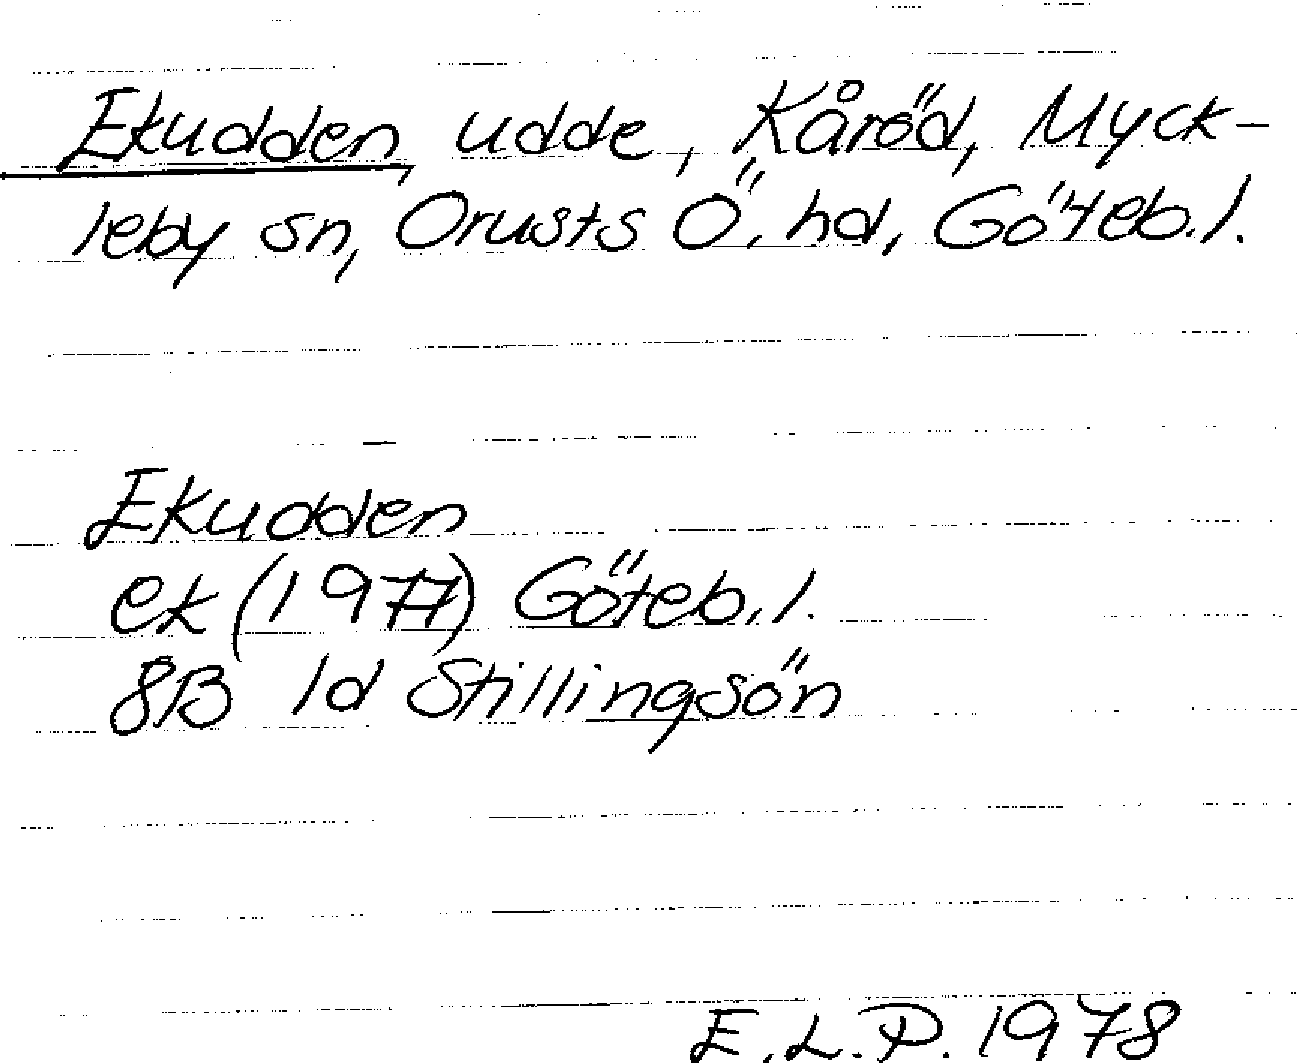 Ekudden, udde, Kåröd, Myck-
leby sn, Orusts Ö. hd, Göteb.l.
Ekudden
ek (1977) Göteb.l.
8B 1d Stillingsön
E.L.P. 1978